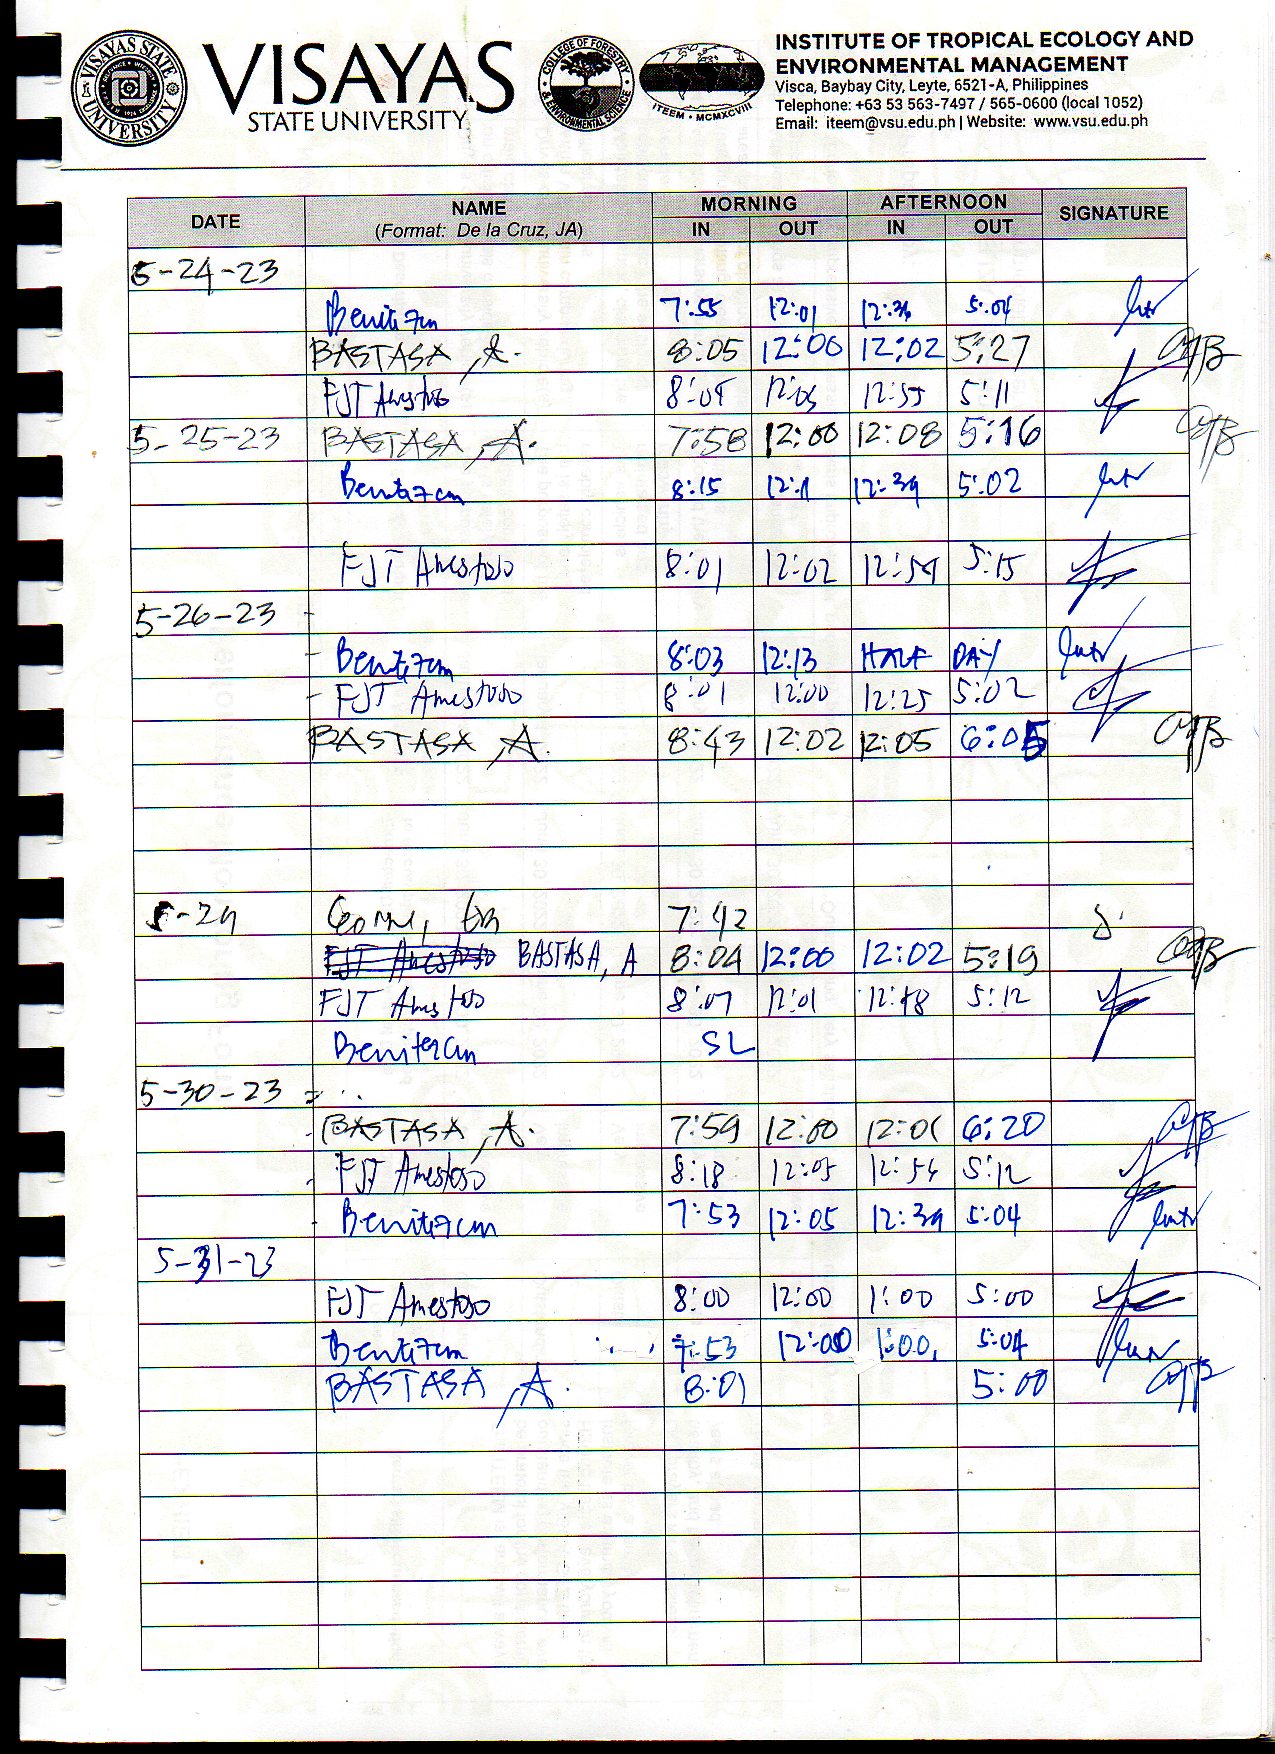 VISAYAS
STATE UNIVERSITY
VISAYAS STATE UNIVERSITY
COLLEGE OF FORESTRY & ENVIRONMENTAL SCIENCE
ITEEM • MCMXCVIII
INSTITUTE OF TROPICAL ECOLOGY AND
ENVIRONMENTAL MANAGEMENT
Visca, Baybay City, Leyte, 6521-A, Philippines
Telephone: +63 53 563-7497 / 565-0600 (local 1052)
Email: iteem@vsu.edu.ph | Website: www.vsu.edu.ph
DATE NAME MORNING AFTERNOON SIGNATURE
(Format: De la Cruz, JA) IN OUT IN OUT
5-24-23
7:55 12:01 5:04
BASTASA, A. 8:05 12:00 12:02 5:27
FJT Amestoso 12:55 5:11
5-25-23 BASTASA, A. 7:58 12:00 12:08 5:16
8:15 12:39 5:02
FJT Amestoso 8:01 12:02 12:59 5:15
5-26-23
8:03 12:13 HALF DAY
FJT Amestoso 8:01 12:00 12:25 5:02
BASTASA, A. 8:43 12:02 12:05 6:05
5-29 7:42
FJT Amestoso BASTASA, A 8:04 12:00 12:02 5:19
FJT Amestoso 8:07 12:01 12:48 5:12
SL
5-30-23
BASTASA, A. 7:59 12:00 12:01 6:20
FJT Amestoso 8:18 12:05 12:54 5:12
7:53 12:05 12:39 5:04
5-31-23
FJT Amestoso 8:00 12:00 1:00 5:00
7:53 12:00 1:00 5:04
BASTASA, A. 8:01 5:00